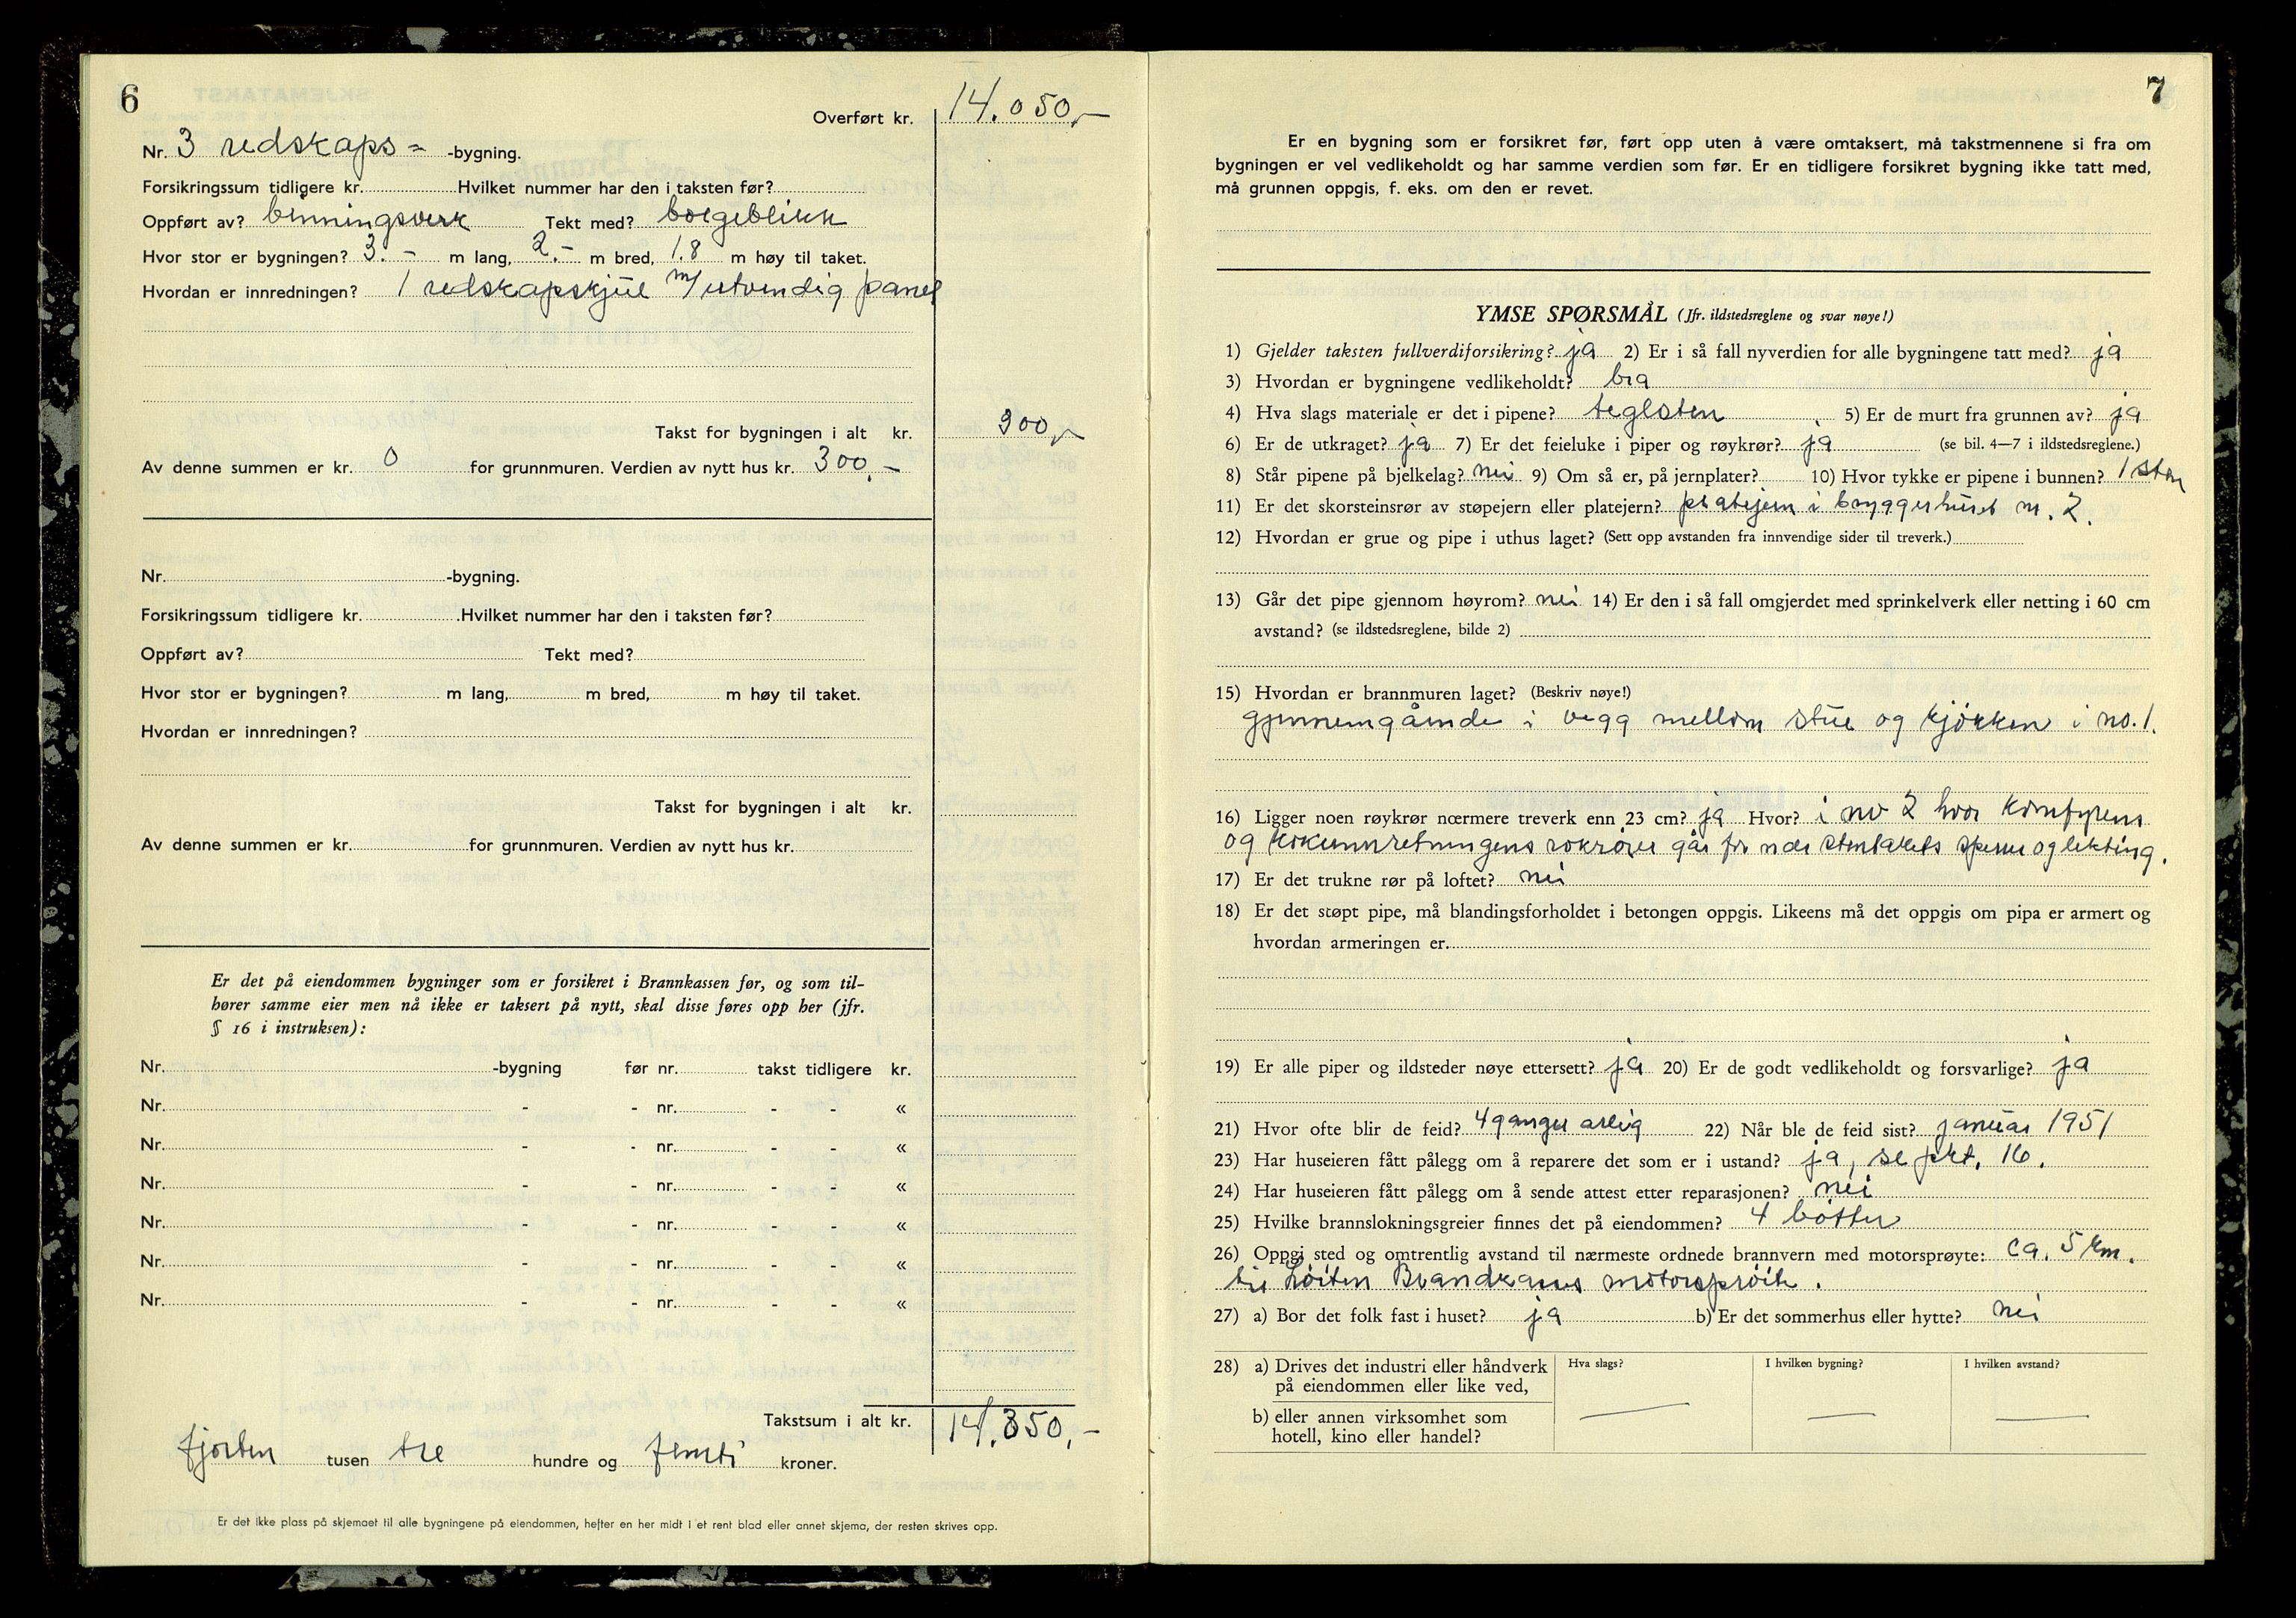 6
Overført kr. 14.050,-
Nr. 3 redskaps = -bygning.
Forsikringssum tidligere kr. Hvilket nummer har den i taksten før?
Oppført av? binningsverk Tekt med? bølgeblikk
Hvor stor er bygningen? 3.- m lang, 2.- m bred, 1.8 m høy til taket.
Hvordan er innredningen? 1 redskapskjul m/ utvendig panel
Takst for bygningen i alt kr. 300,-
Av denne summen er kr. 0 for grunnmuren. Verdien av nytt hus kr. 300,-
Nr. -bygning.
Forsikringssum tidligere kr. Hvilket nummer har den i taksten før?
Oppført av? Tekt med?
Hvor stor er bygningen? m lang, m bred, m høy til taket.
Hvordan er innredningen?
Takst for bygningen i alt kr.
Av denne summen er kr. for grunnmuren. Verdien av nytt hus kr.
Er det på eiendommen bygninger som er forsikret i Brannkassen før, og som til-
hører samme eier men nå ikke er taksert på nytt, skal disse føres opp her (jfr.
§ 16 i instruksen):
Nr. -bygning før nr. takst tidligere kr.
Nr. - - nr. - - «
Nr. - - nr. - - «
Nr. - - nr. - - «
Nr. - - nr. - - «
Nr. - - nr. - - «
Nr. - - nr. - - «
Takstsum i alt kr. 14.350,-
fjorten tusen tre hundre og femti kroner.
Er det ikke plass på skjemaet til alle bygningene på eiendommen, hefter en her midt i et rent blad eller annet skjema, der resten skrives opp.
7
Er en bygning som er forsikret før, ført opp uten å være omtaksert, må takstmennene si fra om
bygningen er vel vedlikeholdt og har samme verdien som før. Er en tidligere forsikret bygning ikke tatt med,
må grunnen oppgis, f. eks. om den er revet.
YMSE SPØRSMÅL (Jfr. ildstedsreglene og svar nøye!)
1) Gjelder taksten fullverdiforsikring? ja 2) Er i så fall nyverdien for alle bygningene tatt med? ja
3) Hvordan er bygningene vedlikeholdt? bra
4) Hva slags materiale er det i pipene? teglsten 5) Er de murt fra grunnen av? ja
6) Er de utkraget? ja 7) Er det feieluke i piper og røykrør? ja (se bil. 4—7 i ildstedsreglene.)
8) Står pipene på bjelkelag? nei 9) Om så er, på jernplater? 10) Hvor tykke er pipene i bunnen? 1 sten
11) Er det skorsteinsrør av støpejern eller platejern? platejern i bryggerhuset nr. 2.
12) Hvordan er grue og pipe i uthus laget? (Sett opp avstanden fra innvendige sider til treverk.)
13) Går det pipe gjennom høyrom? nei 14) Er den i så fall omgjerdet med sprinkelverk eller netting i 60 cm
avstand? (se ildstedsreglene, bilde 2)
15) Hvordan er brannmuren laget? (Beskriv nøye!)
gjennemgående i vegg mellom stue og kjøkken i no. 1.
16) Ligger noen røykrør nærmere treverk enn 23 cm? ja Hvor? i no 2 hvor komfyrens
og kokeinnretningens røkrører går for nær stentakets sperrer og lekting.
17) Er det trukne rør på loftet? nei
18) Er det støpt pipe, må blandingsforholdet i betongen oppgis. Likeens må det oppgis om pipa er armert og
hvordan armeringen er.
19) Er alle piper og ildsteder nøye ettersett? ja 20) Er de godt vedlikeholdt og forsvarlige? ja
21) Hvor ofte blir de feid? 4 ganger årlig 22) Når ble de feid sist? januar 1951
23) Har huseieren fått pålegg om å reparere det som er i ustand? ja, se pkt. 16.
24) Har huseieren fått pålegg om å sende attest etter reparasjonen? nei
25) Hvilke brannslokningsgreier finnes det på eiendommen? 4 bøtter
26) Oppgi sted og omtrentlig avstand til nærmeste ordnede brannvern med motorsprøyte: ca. 5 km.
til Løiten Brandkasses motorsprøite.
27) a) Bor det folk fast i huset? ja b) Er det sommerhus eller hytte? nei
28) a) Drives det industri eller håndverk
på eiendommen eller like ved,
b) eller annen virksomhet som
hotell, kino eller handel?
Hva slags? I hvilken bygning? I hvilken avstand?